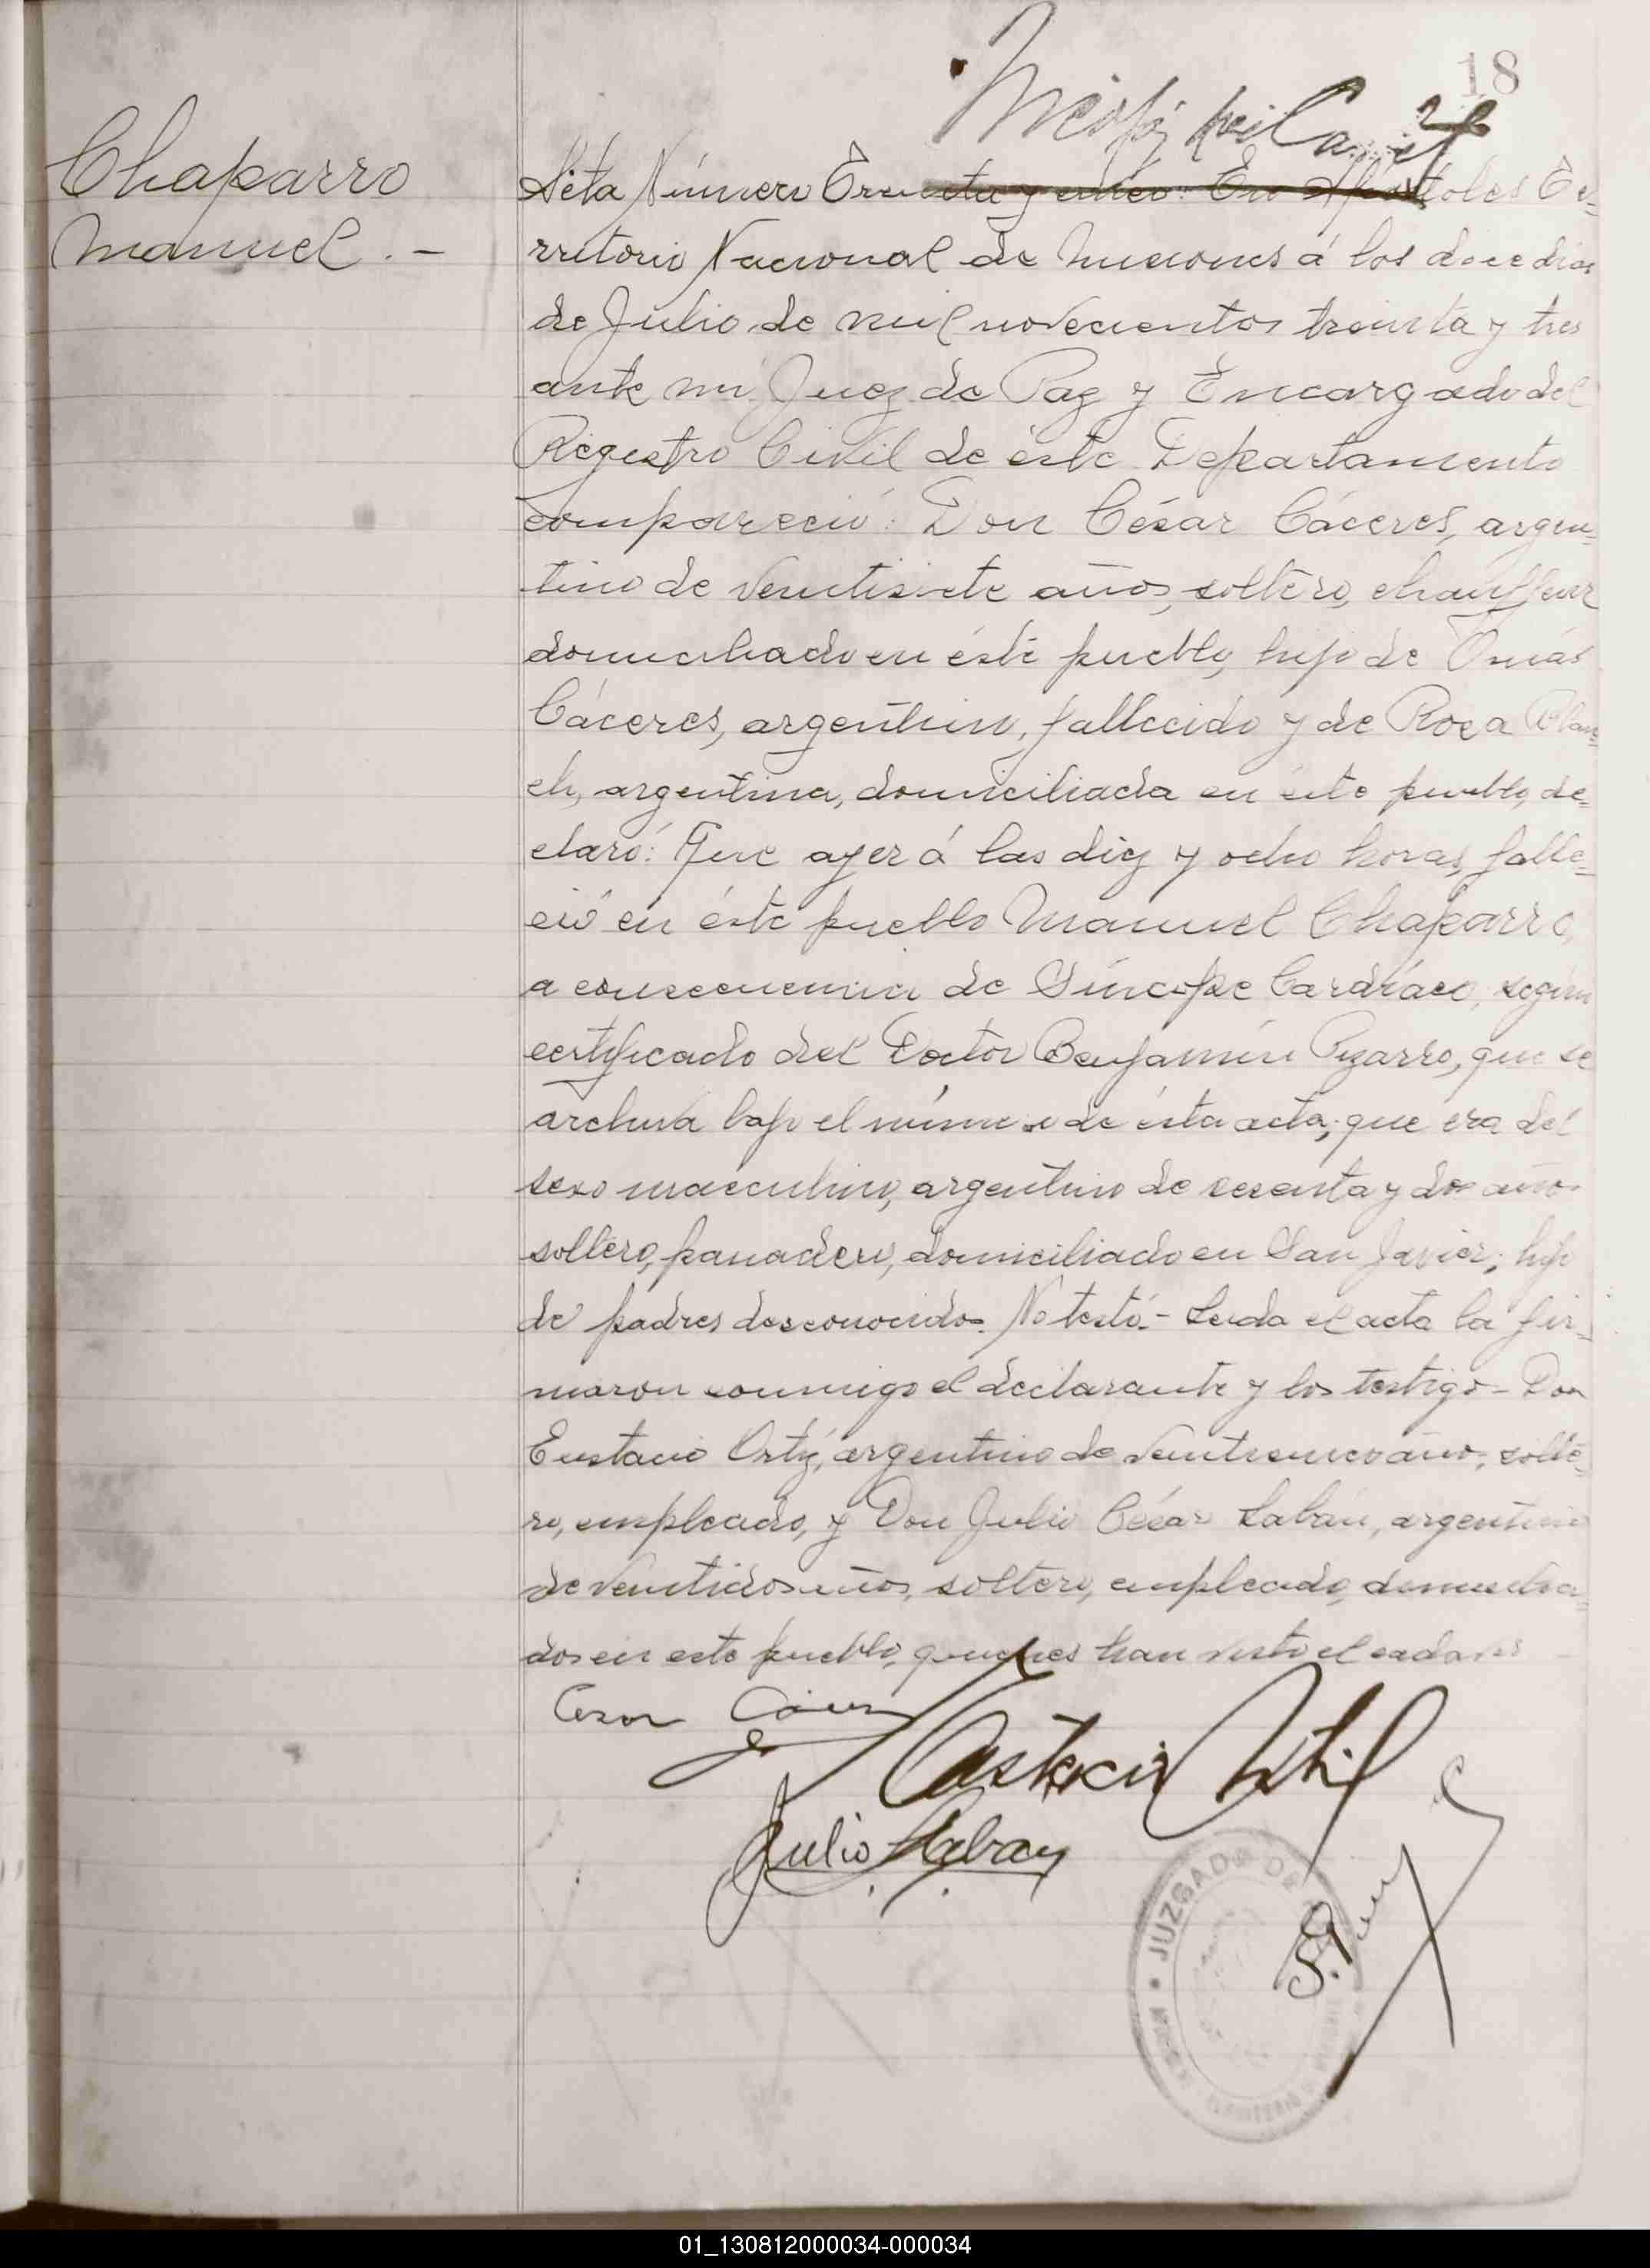 18
Chaparro
Manuel. -
Acta Número Treinta y cinco: En Apóstoles Te-
rritorio Nacional de Misiones á los doce dias
de Julio de mil novecientos treinta y tres
ante mi Juez de Paz y Encargado del
Registro Civil de éste Departamento
compareció: Don César Cáceres, argen-
tino de veintisiete años, soltero, chauffeur
domiciliado en éste pueblo, hijo de
Cáceres, argentino, fallecido y de Rosa Blan-
ch, argentina, domiciliada en éste pueblo, de-
claró: Que ayer á las diez y ocho horas, falle-
ció en éste pueblo Manuel Chaparro,
a consecuencia de Síncope Cardíaco, según
certificado del Doctor Benjamín Pizarro, que se
archiva bajo el número de ésta acta; que era del
sexo masculino, argentino de sesenta y dos años
soltero, panadero, domiciliado en San Javier; hijo
de padres desconocidos. No testó.- Leida el acta la fir-
maron conmigo el declarante y los testigos - Don
Eustacio Ortíz, argentino de años, solte-
ro, empleado, y Don Julio César Labán, argentino
de veintidos años, soltero, empleado, domicilia-
dos en este pueblo, quienes han visto el cadaver
Cesar
Julio Laban
JUZGADO DE